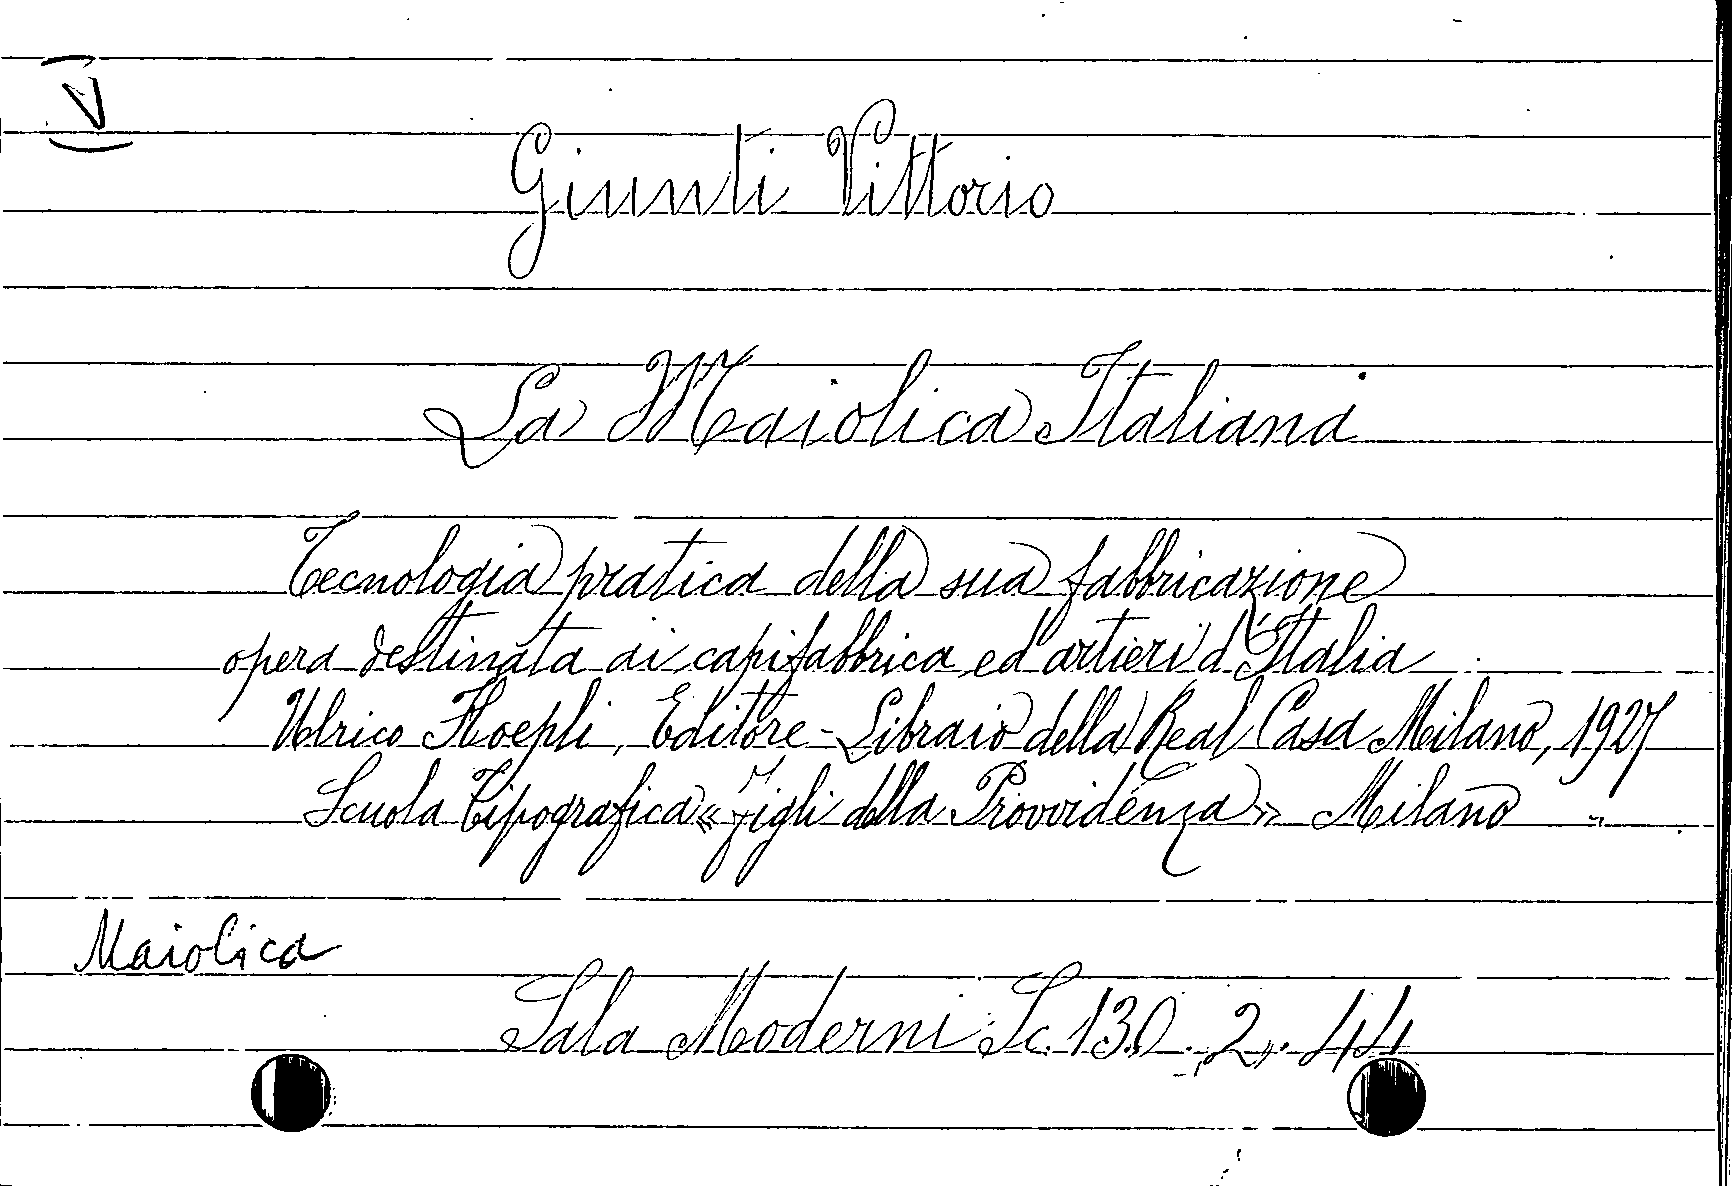 V
Giunti Vittorio
La Maiolica Italiana
Tecnologia pratica della sua fabbricazione
opera destinata ai capifabbrica ed artieri d'Italia
Ulrico Hoepli, Editore-Libraio della Real Casa Milano, 1927
Scuola Tipografica «Figli della Provvidenza» Milano "
Maiolica
Sala Moderni Sc. 130. 2. 44